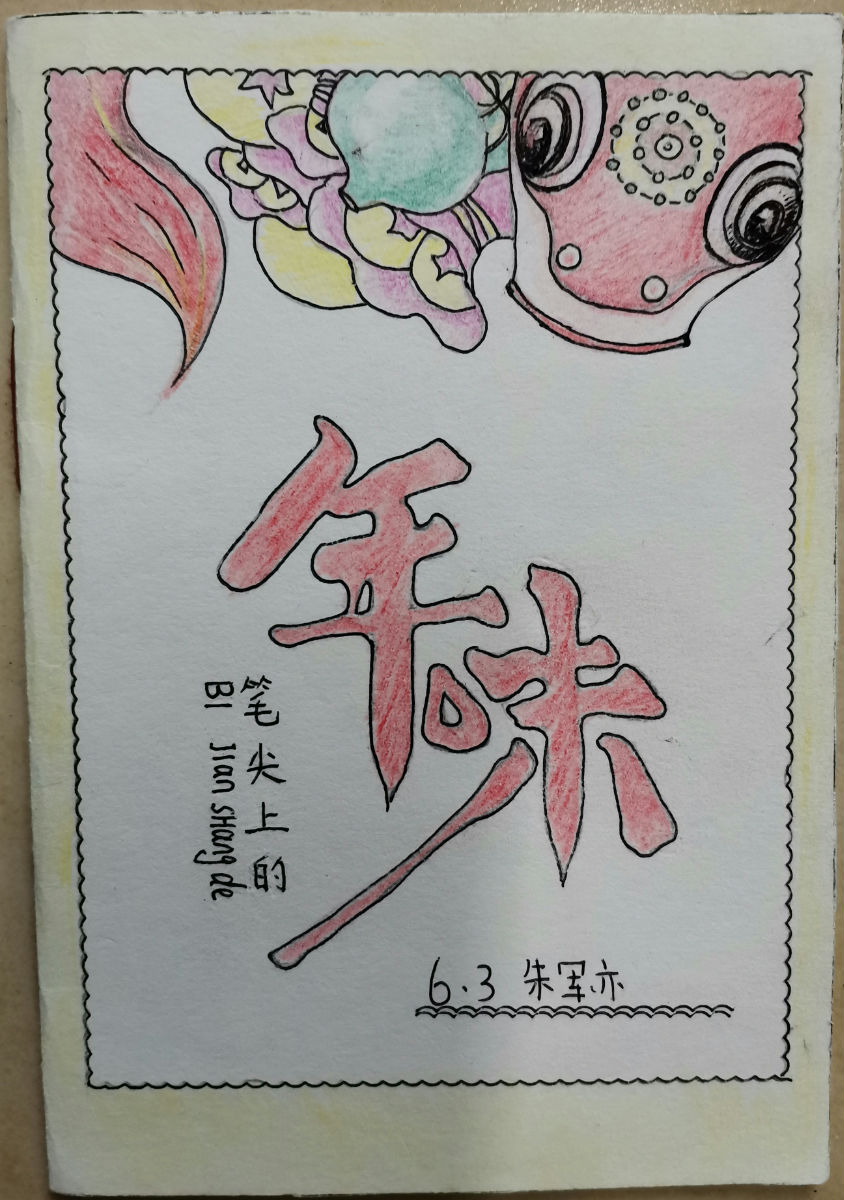 年味
笔尖上的
BI JIan SHang de
6.3 朱军亦